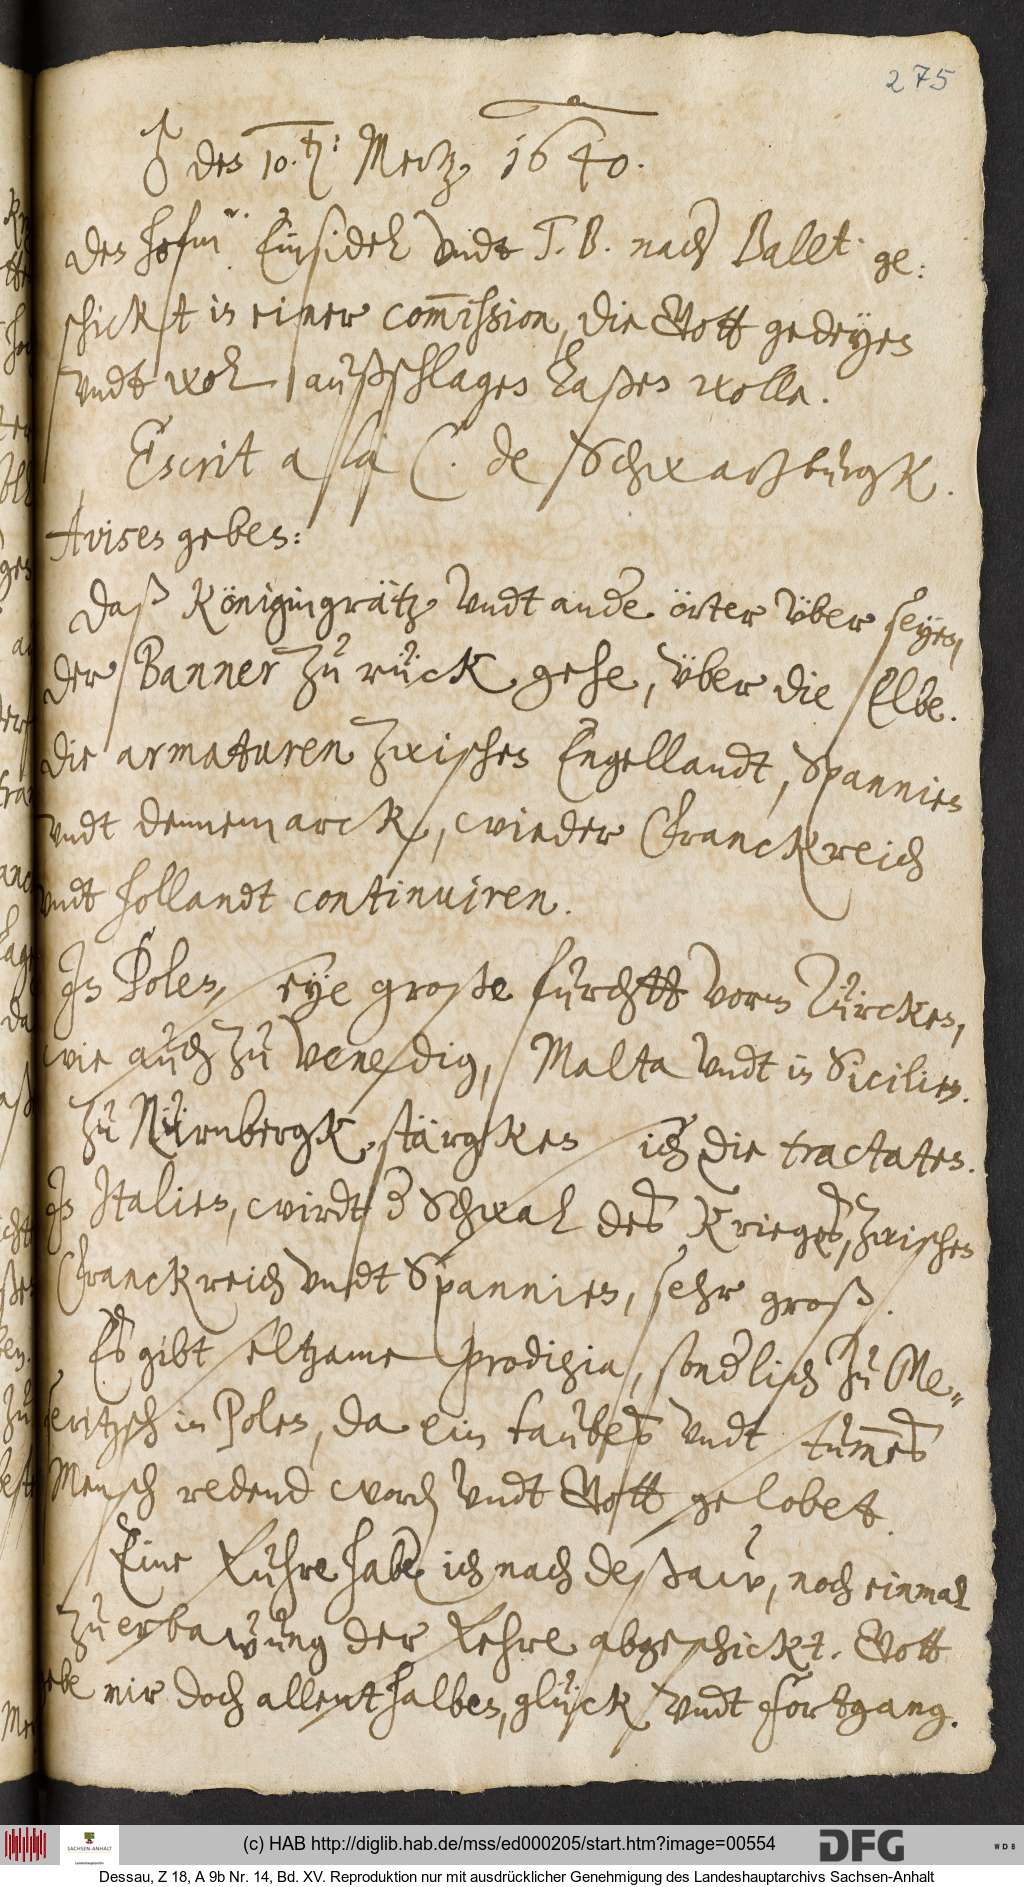 275
♂ den 10.ten: Mertz, 1640.
Den hofm. Einsidel vndt T. B. nach Ballst. ge:
schickt in einer com̄ission, die Gott gedeyen
vndt wol außschlagen laßen wolle.
Escrit a la C. de Schwartzburgk.
Avisen geben:
Daß Königingrätz, vndt andere örter über seyen,
der Banner zu rück gehe, über die Elbe.
Die armaturen zwischen Engellandt, Spannien
vndt dennemarck, wieder Franckreich
vndt hollandt continuiren.
In Polen, seye große furchtt vorm Türcken,
wie auch zu Venedig, Malta vndt in Sicilien.
Zu Nürnbergk, stärgken sich die tractaten.
In Italien, wirdt der Schwal des Krieges, zwischen
Franckreich vndt Spannien, sehr groß.
Es gibt seltzame prodigia, sonderlich zu Me-
seritzsch in Polen, da ein taubes vndt stum̄es
Mensch redend worden vndt Gott gelobet.
Eine Fuhre habe ich nach Deßaw, noch einmal
zu erbawung der Fehre abgeschickt. Gott
gebe mir doch allenthalben, glück vndt fortgang.
(c) HAB http://diglib.hab.de/mss/ed000205/start.htm?image=00554
SACHSEN-ANHALT
DFG
WDB
Dessau, Z 18, A 9b Nr. 14, Bd. XV. Reproduktion nur mit ausdrücklicher Genehmigung des Landeshauptarchivs Sachsen-Anhalt